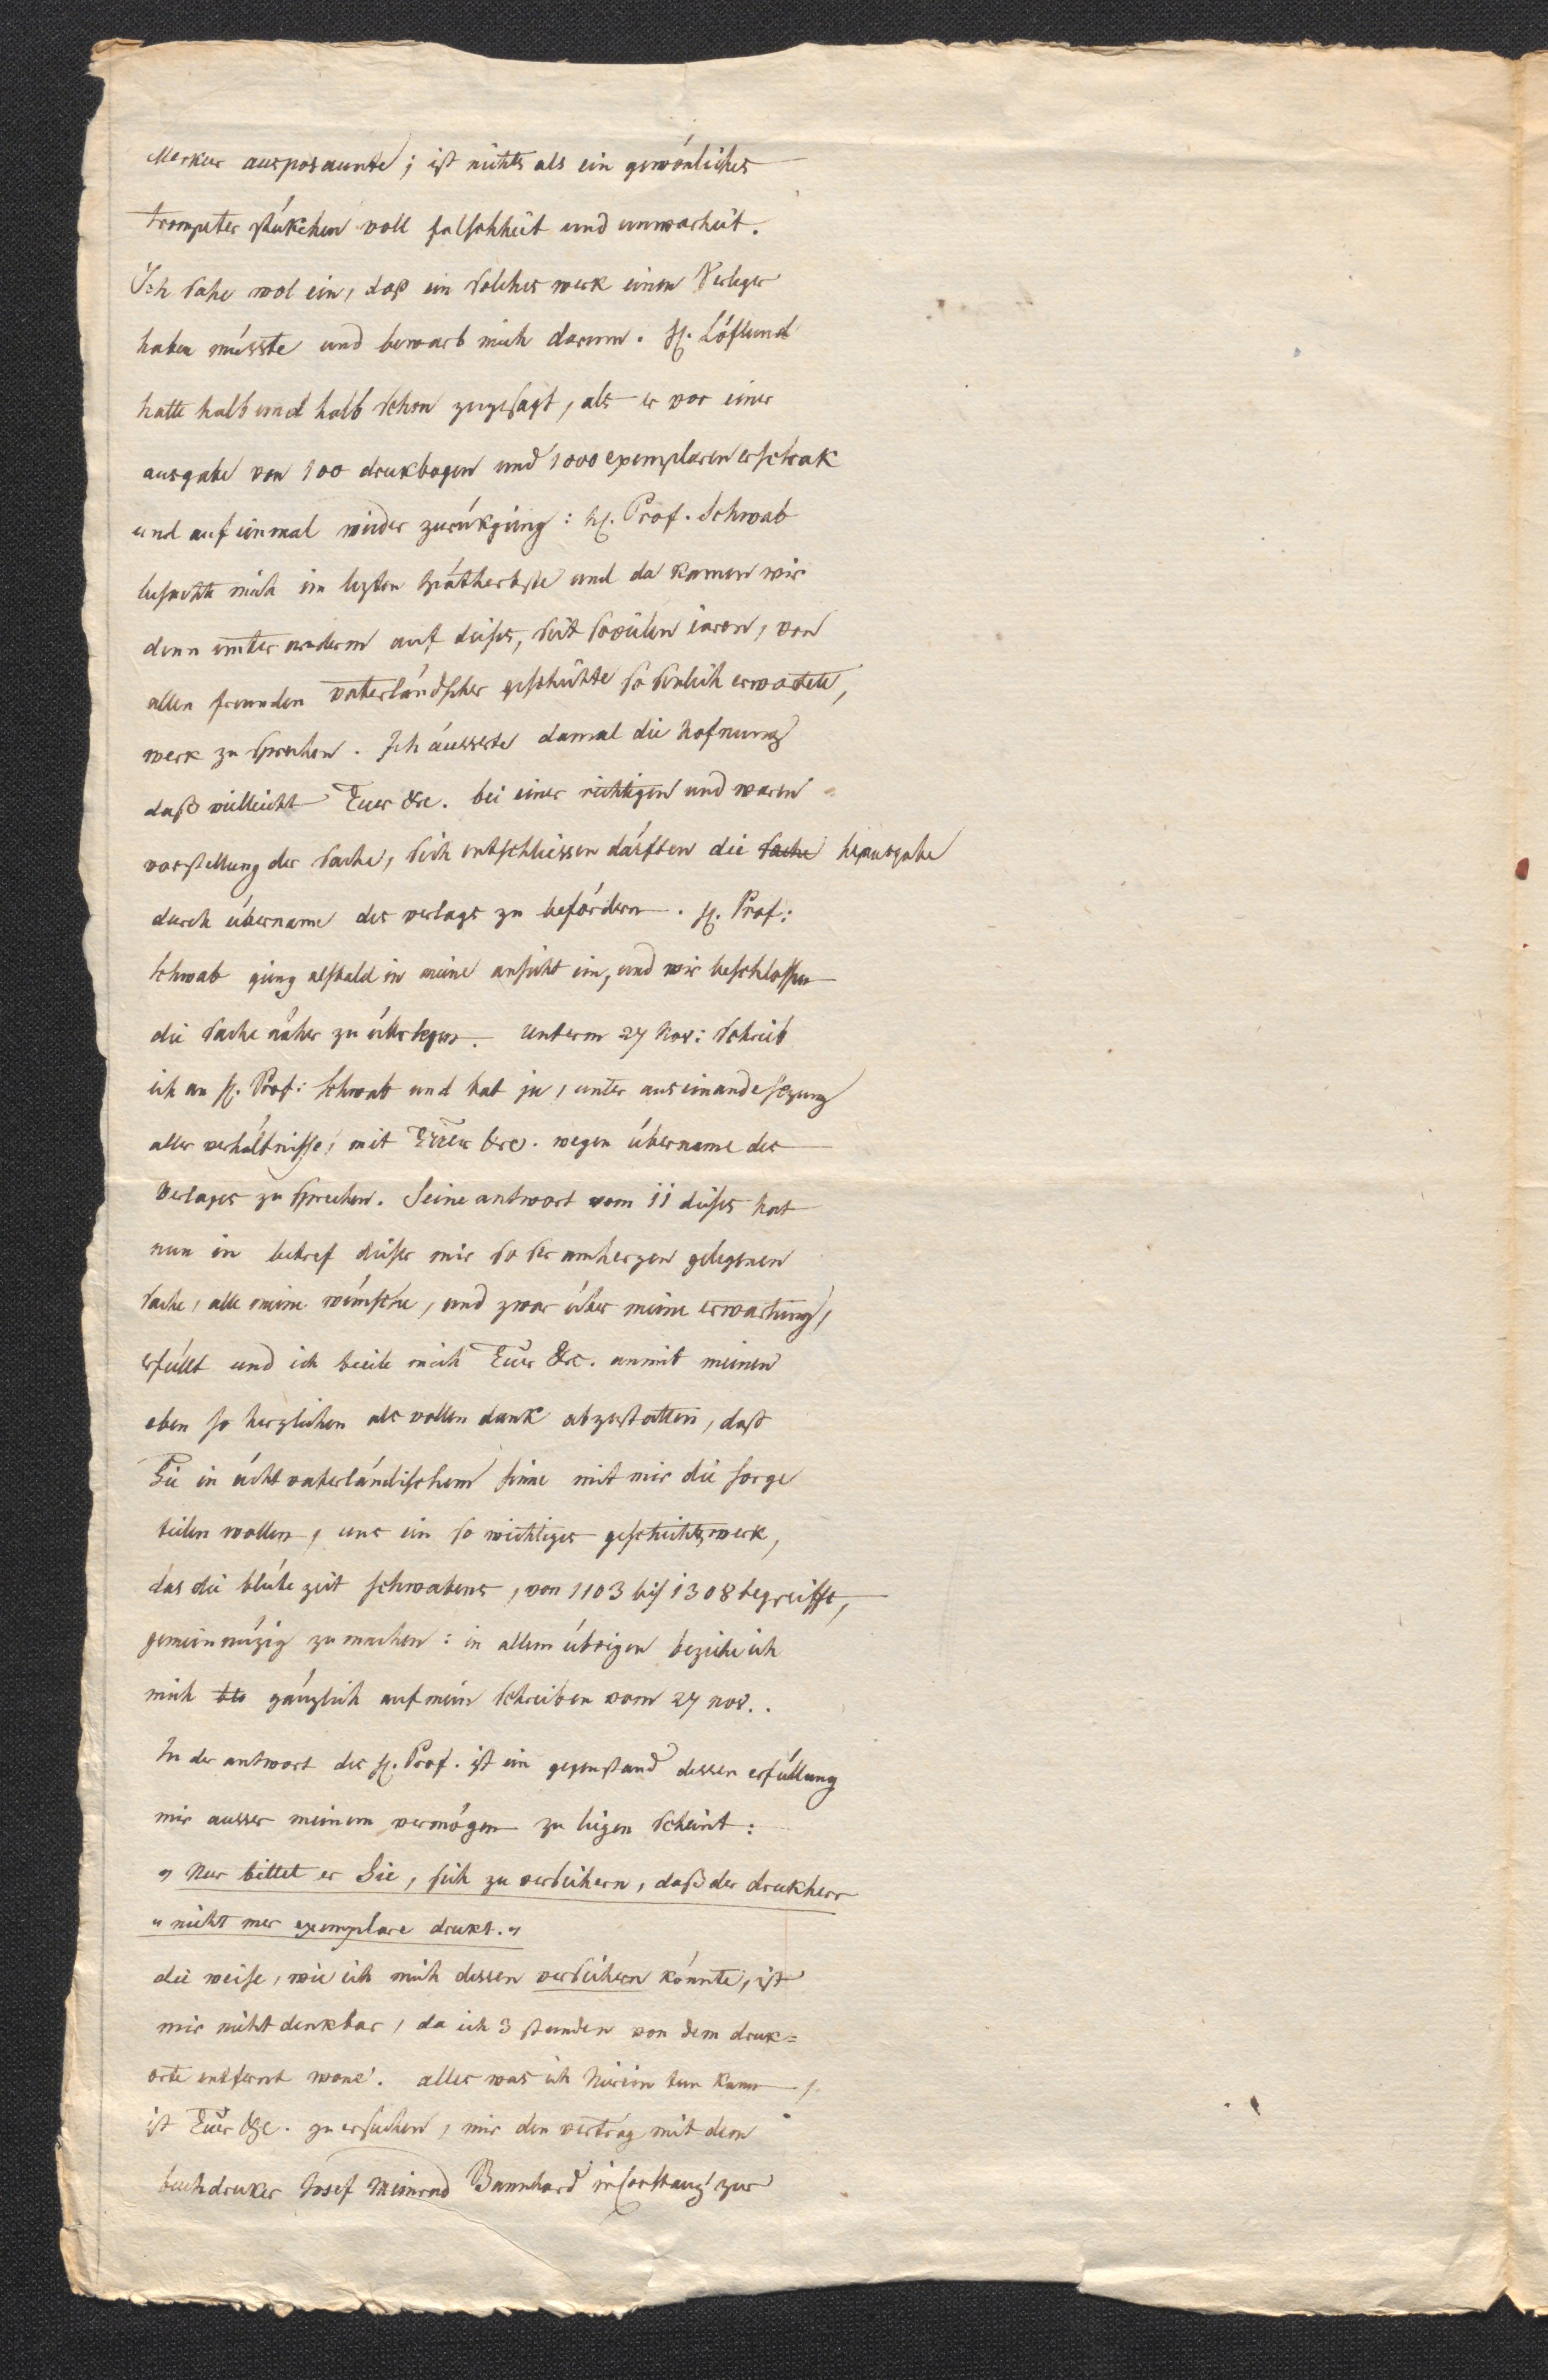 Merkur ausposaunte; ist nichts als ein gewónliches
trompeter stükchen voll falschheit und unwarheit.
Ich sahe wol ein, daß ein solches werk einen Verleger
haben músste und bewarb mich darum. H. Lóflund
hatte halb und halb schon zugesagt, als er vor einer
ausgabe von 100 drukbogen und 1000 exemplaren erschrak
und auf einmal wieder zurúkgieng: H. Prof. Schwab
besuchte mich im lezten spátherbste und da kamen wir
denn unter anderm auf dieses, seit sovielen iaren, von
allen freunden vaterlándscher geschichte so senlich erwartete,
werk zu sprechen. Ich áusserte damal die hofnung
daß vielleicht Euer &c. bei einer richtigen und waren
vorstellung der sache, sich entschliessen dúrften die sache herausgabe
durch úbername des verlags zu befórdern. H. Prof:
Schwab gieng alsbald in meine ansicht ein, und wir beschlossen
die sache náher zu úberlegen. Unterm 27 Nov: schrieb
ich an H. Prof: Schwab und bat in, unter auseinandesezung
aller verháltnisse, mit Euer &c. wegen úbername des
Verlages zu sprechen. Seine antwort vom 11 dieses hat
nun in betref dieser mir so ser amherzen gelegenen
sache, alle meine wúnsche, und zwar úber meine erwartung,
erfúllt und ich beeile mich Euer &c. anmit meinen
eben so herzlichen als vollen dank abzustatten, daß
Sie in ácht vaterlándischem sinne mit mir die sorge
teilen wollen, uns ein so wichtiges geschichtswerk,
das die blúte zeit schwabens, von 1103 bis 1308 begreifft,
gemeinnúzig zu machen: in allem úbrigen beziehe ich
mich gánzlich auf mein schreiben vom 27 nov..
In der antwort des H. Prof. ist ein gegenstand dessen erfúllung
mir ausser meinem vermógen zu ligen scheint:
„Nur bittet er Sie, sich zu versichern, daß der drukherr
„nicht mer exemplare drukt."
die weise, wie ich mich dessen versichern kónnte, ist
mir nicht denkbar, da ich 3 stunden von dem druk=
orte entfernt wone. alles was ich hierin tun kann,
ist Euer &c. zu ersuchen, mir den vertrag mit dem
buchdruker Josef Meinrad Bannhard in Constanz zur